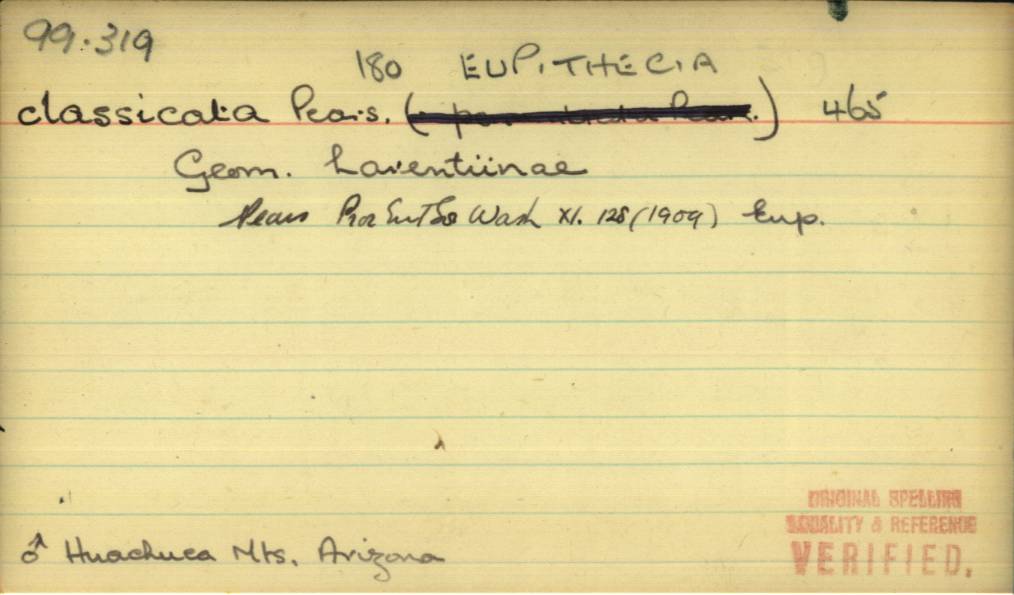 99.319
180 EUPITHECIA
classicata Pears. ( ) 465
Geom. Larentiinae
Pears Proc Ent So Wash XI. 128 (1909) Eup.
ORIGINAL SPELLING
LOCALITY & REFERENCE
VERIFIED.
♂ Huachuca Mts. Arizona